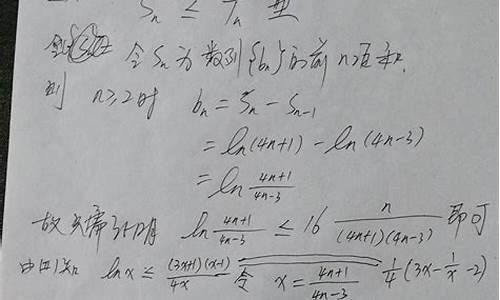 Sn ≤ Tn 型
令 Sn 为数列{bn}的前n项和.
则 n≥2时 bn = Sn - Sn-1
= ln(4n+1) - ln(4n-3)
= ln (4n+1)/(4n-3)
故只需证明 ln (4n+1)/(4n-3) ≤ 16 n/((4n+1)(4n-3)) 即可
由(1)知 lnx ≤ (3x+1)(x-1)/4x 令 x = (4n+1)/(4n-3) 1/4(3x - 1/x - 2)